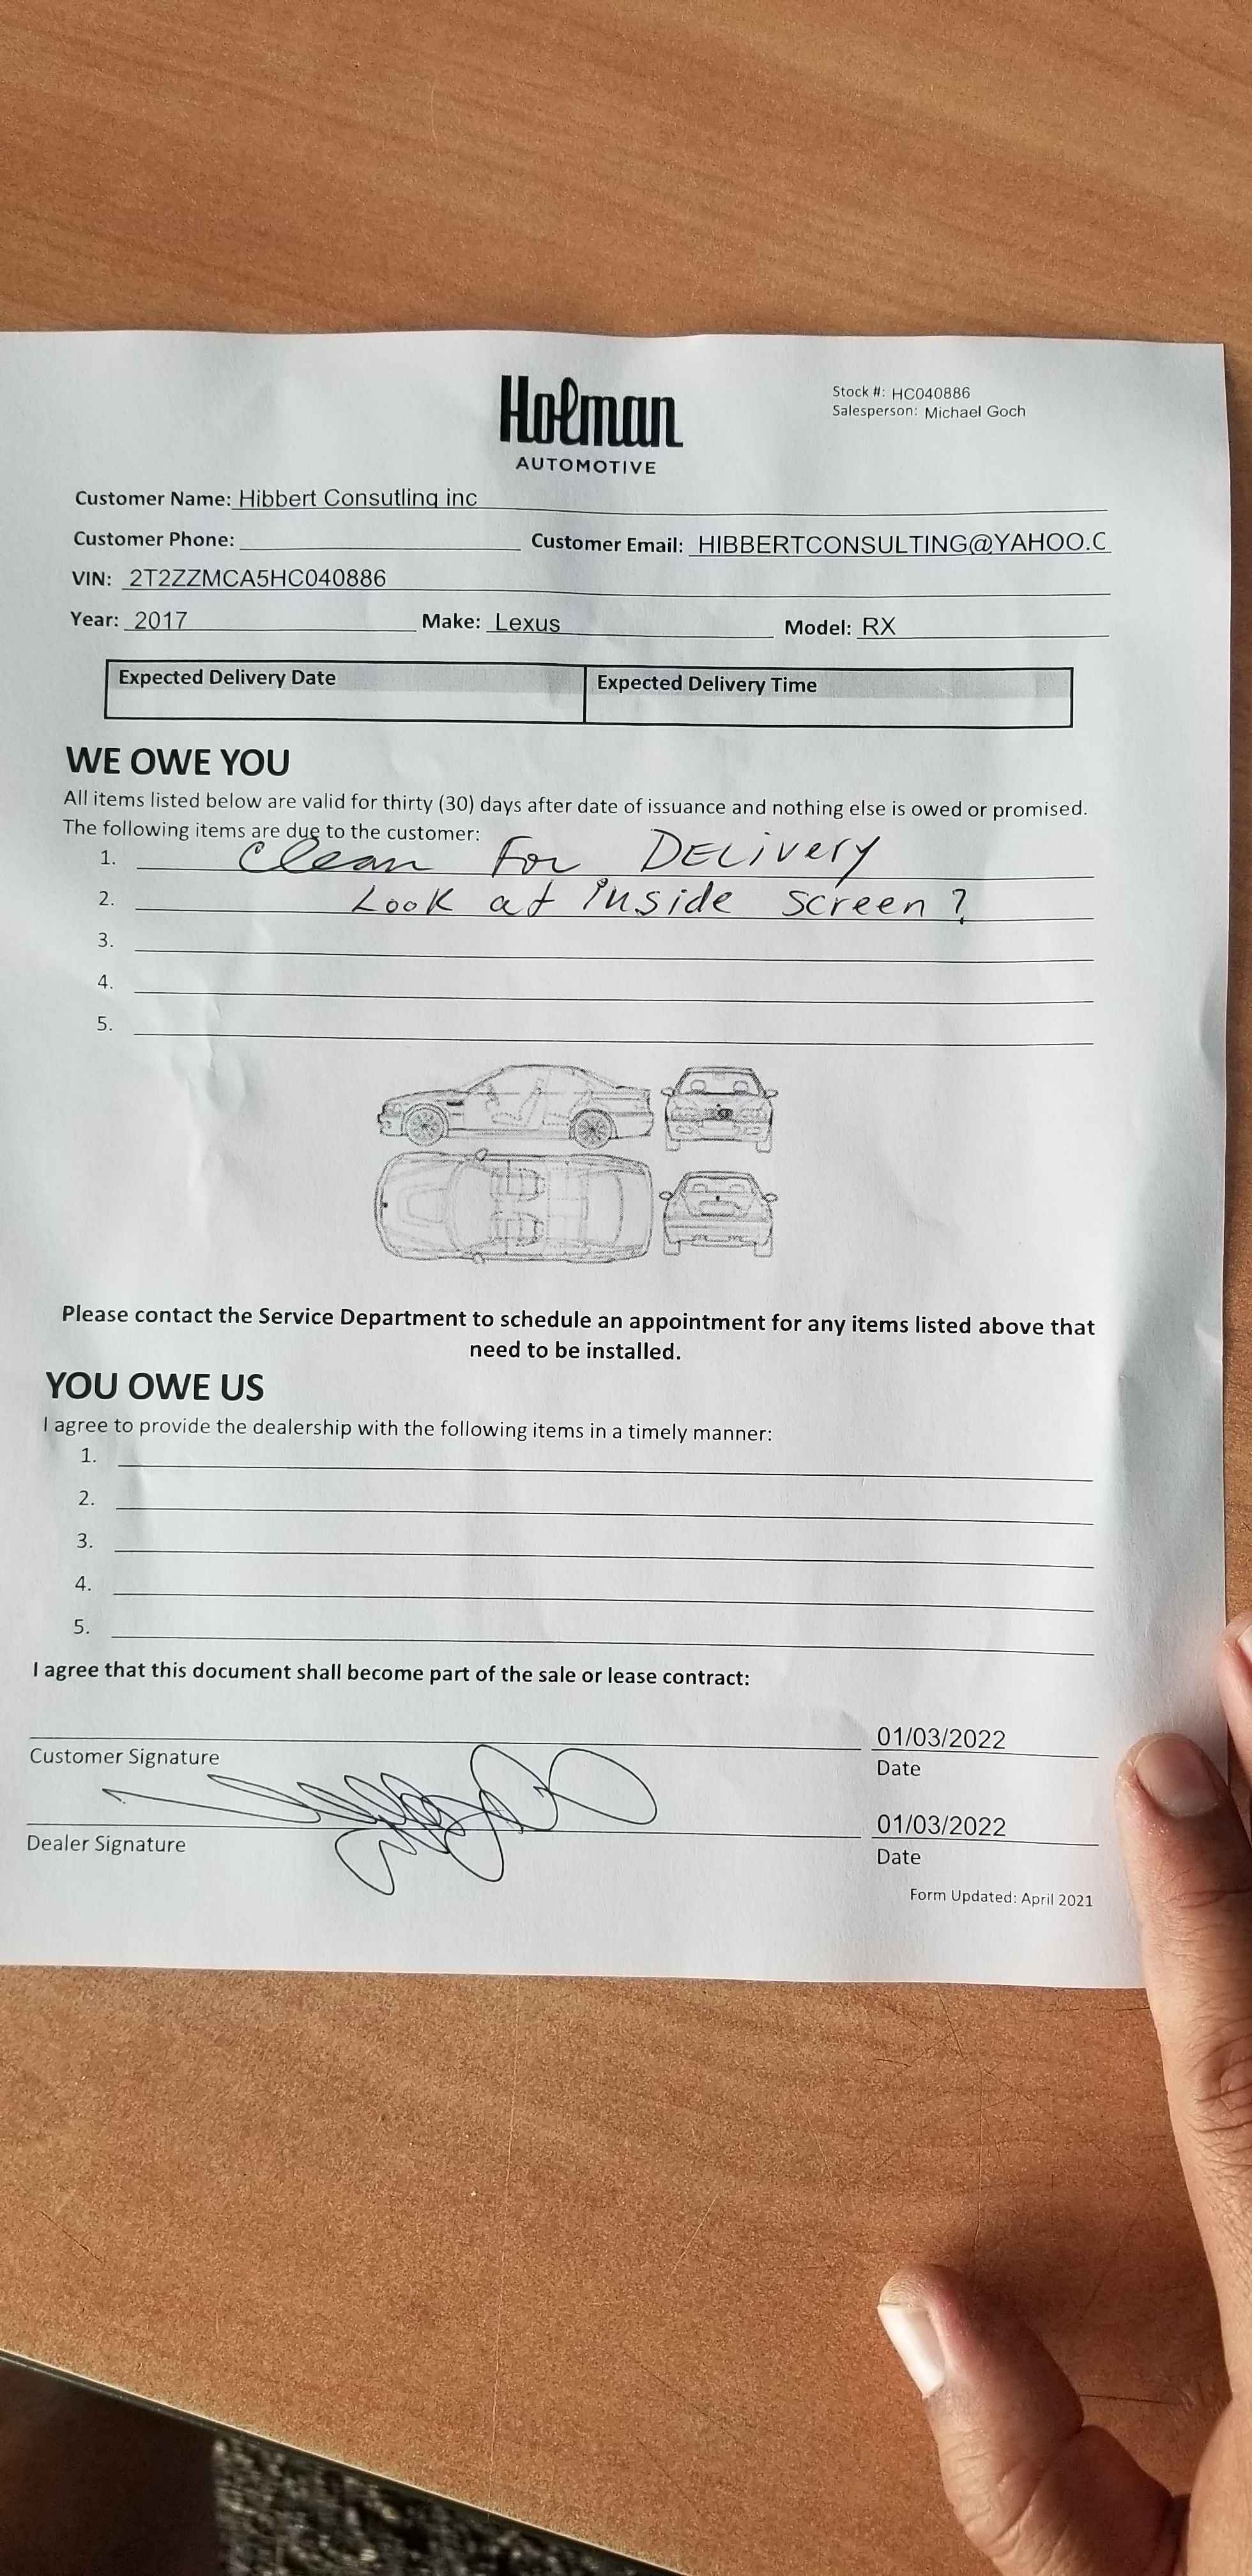 Holman
AUTOMOTIVE
Stock #: HC040886
Salesperson: Michael Goch
Customer Name: Hibbert Consutling inc
Customer Phone: Customer Email: HIBBERTCONSULTING@YAHOO.C
VIN: 2T2ZZMCA5HC040886
Year: 2017 Make: Lexus Model: RX
Expected Delivery Date Expected Delivery Time
WE OWE YOU
All items listed below are valid for thirty (30) days after date of issuance and nothing else is owed or promised.
The following items are due to the customer:
1. Clean For Delivery
2. Look at inside screen?
3.
4.
5.
Please contact the Service Department to schedule an appointment for any items listed above that
need to be installed.
YOU OWE US
I agree to provide the dealership with the following items in a timely manner:
1.
2.
3.
4.
5.
I agree that this document shall become part of the sale or lease contract:
01/03/2022
Customer Signature Date
01/03/2022
Dealer Signature Date
Form Updated: April 2021